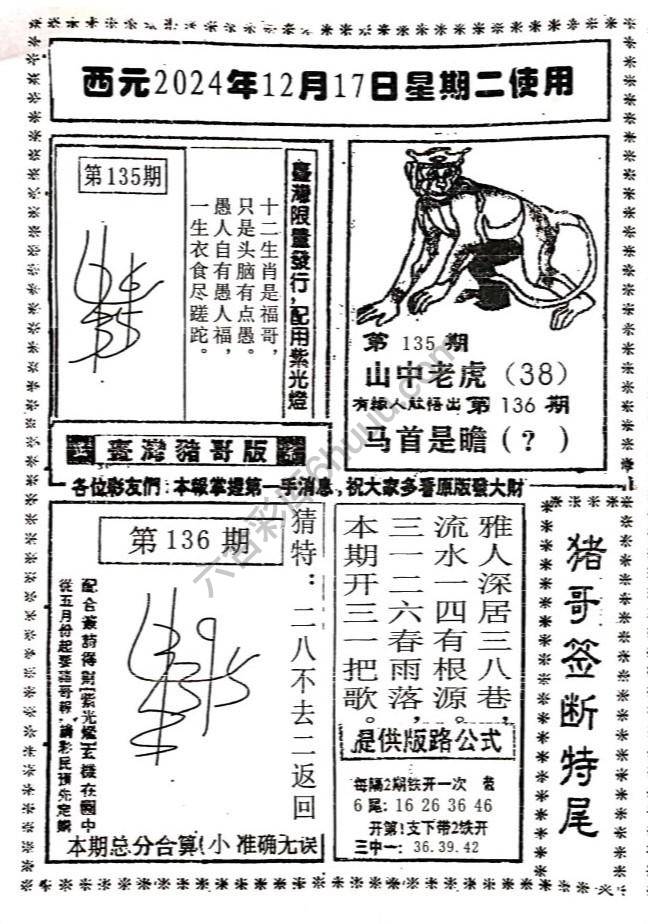 西元2024年12月17日星期二使用
第135期
臺灣限量發行,配用紫光燈
十二生肖是福哥,
只是头脑有点愚。
愚人自有愚人福,
一生衣食尽蹉跎。
第 135 期
山中老虎(38)
有缘人敢悟出 第 136 期
马首是瞻(?)
臺灣豬哥版
各位彩友們:本報掌握第一手消息,祝大家多看原版發大財
第136期
猜特:二八不去二返回
配合簽詩得財[紫光燈]玄機在圖中
從五月份起要豬哥報,請彩民預先定購
本期总分合算(小 准确无误
雅人深居三八巷,
流水一四有根源。
三一二六春雨落,
本期开三一把歌。
提供版路公式
每隔2期铁开一次
6尾:16 26 36 46
开第1支下带2铁开
三中一:36.39.42
猪哥签断特尾
六合彩库6huuu.com